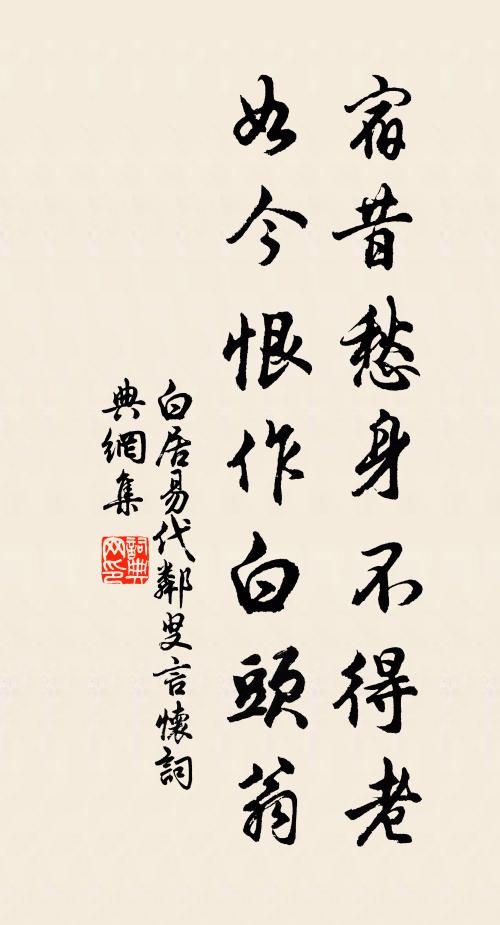 宿昔愁身不得老
如今恨作白頭翁
白居易代鄰叟言懷詞
典網集
詞典网印